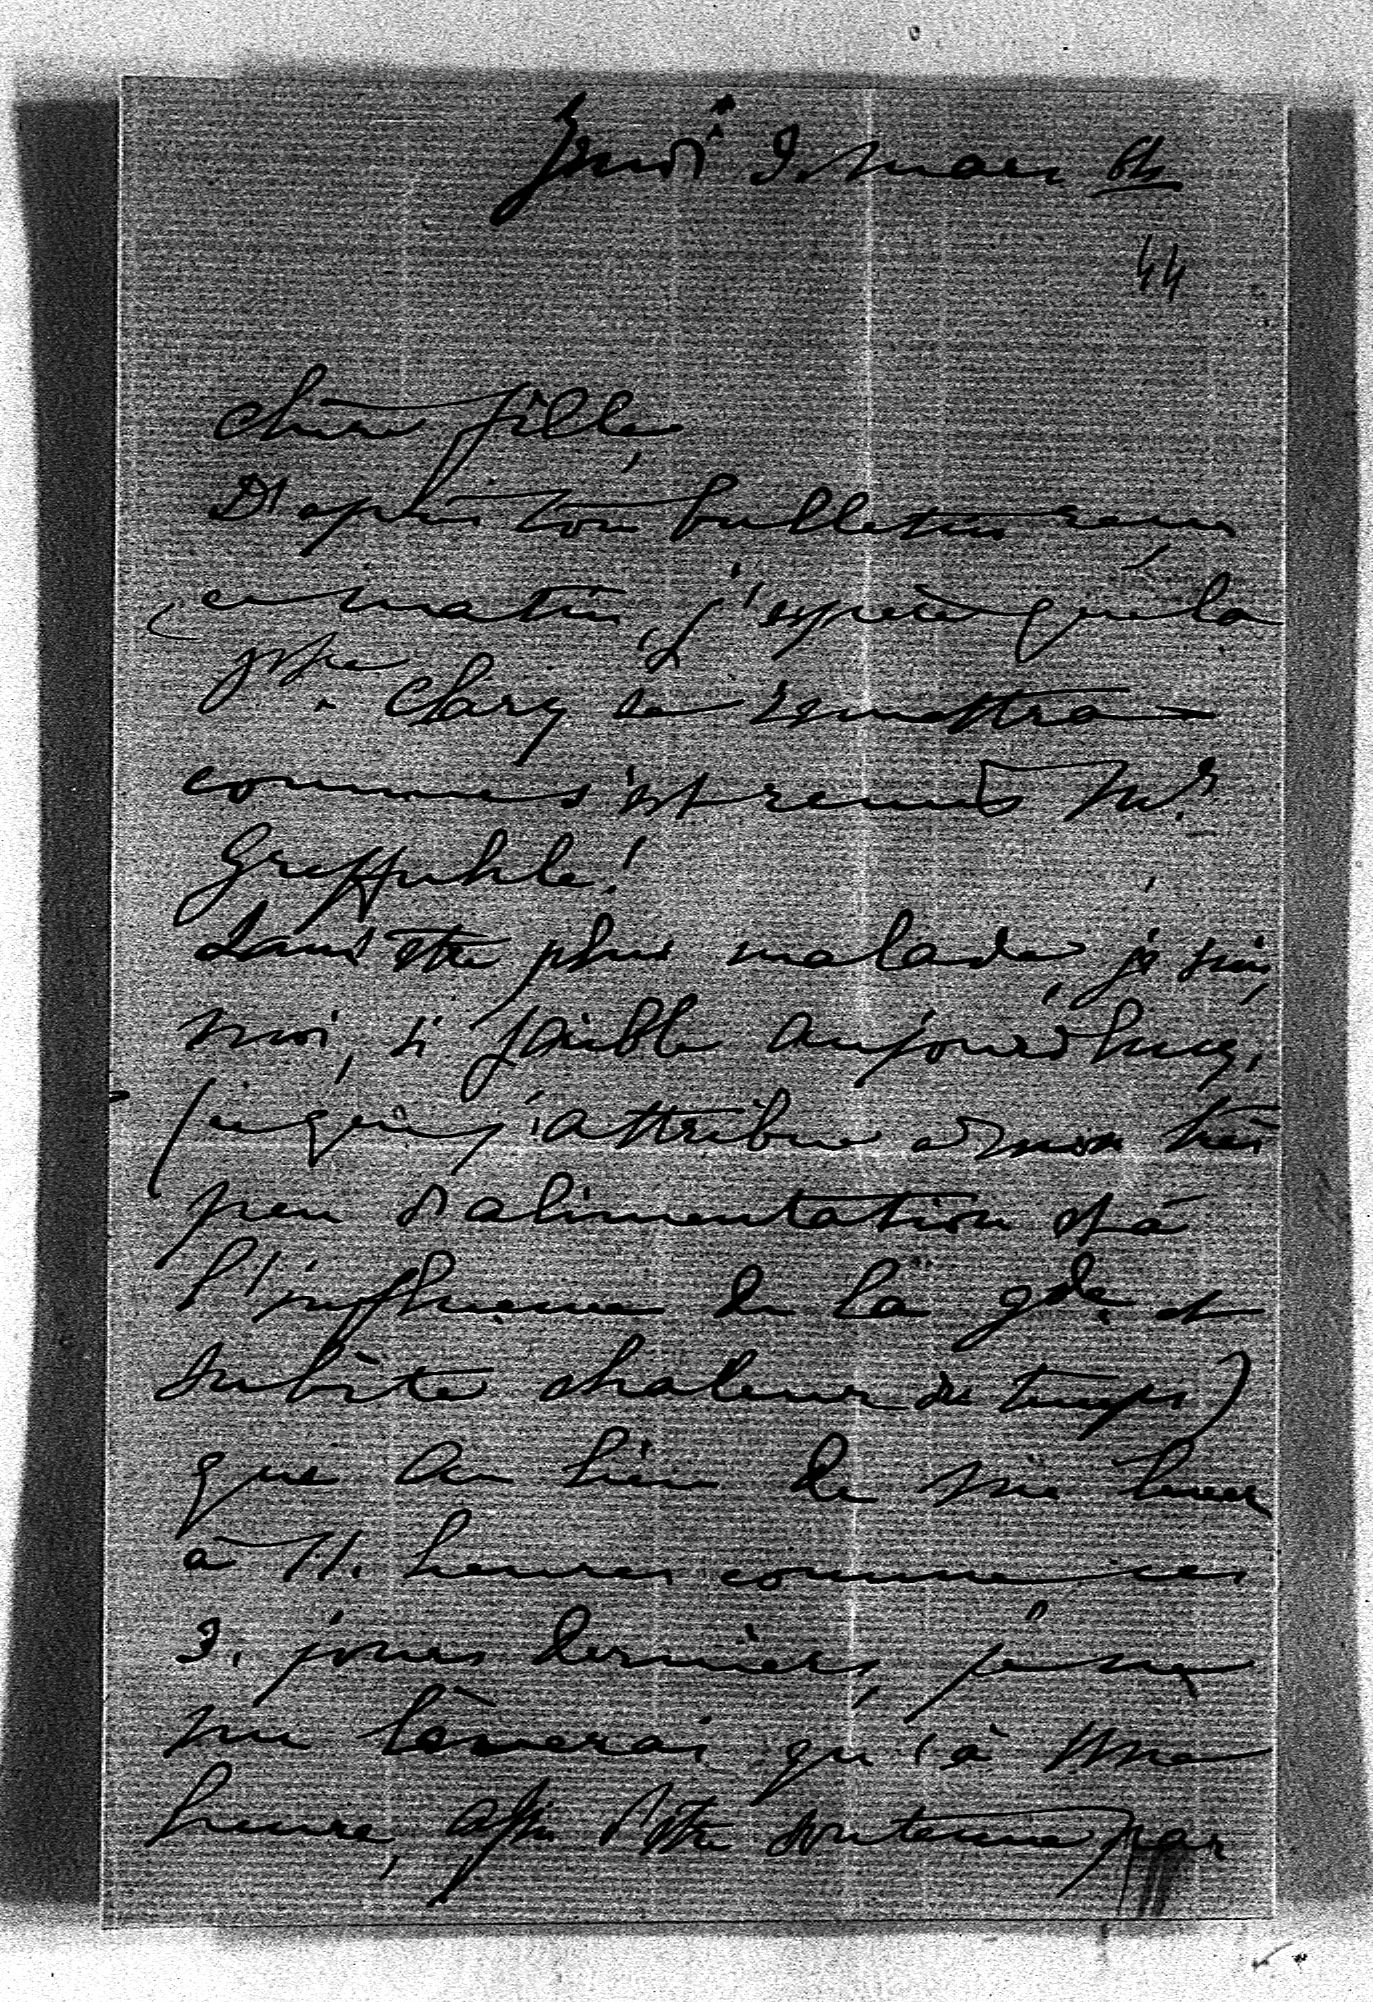 Jeudi 3. mars 64
44
chère fille,
D'après ton bulletin reçu
ce matin, j'espère que la
psse. Clary se remettra
comme s'est remis Mr.
Greffuhle!
Sans être plus malade, je suis
moi, si faible aujourd'huy,
(ce que j'attribue à mon très
peu d'alimentation et à
l'influence de la gde. et
subite chaleur du temps)
que au lieu de me lever
à 11. heures comme ces
3. jours derniers, je ne
me lèverai qu'à une
heure, afin d'être soutenue par